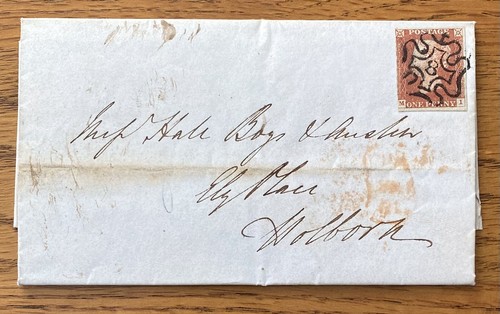 POSTAGE
8
M ONE PENNY I
Messrs Hall Boys & Austen
Ely Place
Holborn